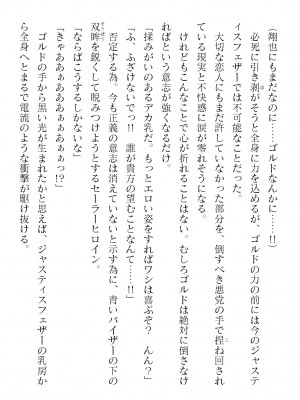 （翔也にもまだなのに……ゴルドなんかに……!!）
必死に引き剥がそうと全身に力を込めるが、ゴルドの力の前には今のジャステ
ィスフェザーでは不可能なことだった。
大切な恋人にもまだ許していなかった部分を、倒すべき悪党の手で捏ね回され
ている現実と不快感に涙が零れそうになる。
けれどもこんなことで心が折れることはない。むしろゴルドは絶対に倒さなけ
ればという意志が強くなるだけだ。
「揉みがいのあるデカ乳だ。もっとエロい姿をすればワシは喜ぶぞ？　んん？」
「ふ、ふざけないでっ!!　誰が貴方の望むことなんて…！」
否定する為。今も正義の意志は消えていないと示す為に、青いバイザーの下の
双眸を鋭くして睨みつけようとするセーラーヒロイン。
「ならばこうするしかないな」
「きゃああぁぁぁぁぁぁぁっ!?」
ゴルドの手から黒い光が生まれたかと思えば、ジャスティスフェザーの乳房か
ら全身へとまるで電流のような衝撃が駆け抜ける。